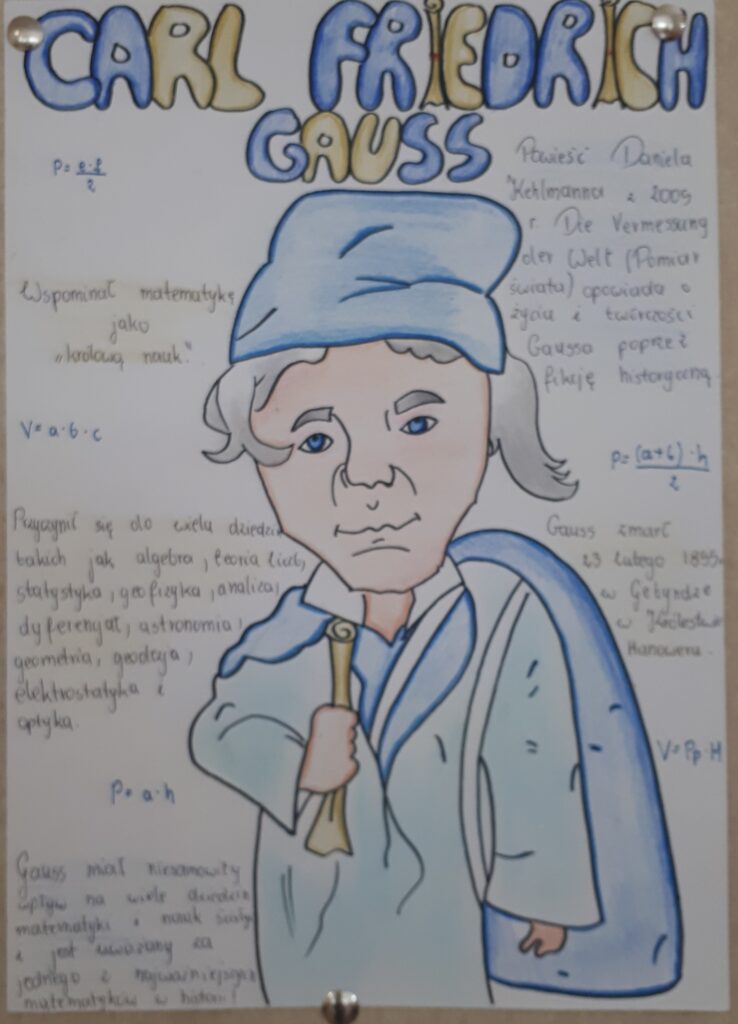 CARL FRIEDRICH
GAUSS
P = e·f/2
Powieść Daniela
Kehlmanna z 2005
r. Die Vermessung
der Welt (Pomiar
świata) opowiada o
życiu i twórczości
Gaussa poprzez
fikcję historyczną.
Wspominał matematykę
jako
„królową nauk."
V = a·b·c
P = (a+b)·h/2
Przyczynił się do wielu dziedzin
takich jak algebra, teoria liczb,
statystyka, geofizyka, analiza,
dyferencjał, astronomia,
geometria, geodezja,
elektrostatyka i
optyka.
Gauss zmarł
23 lutego 1855
w Getyndze
w Królestwie
Hanoweru.
V = Pp·H
P = a·h
Gauss miał niesamowity
wpływ na wiele dziedzin
matematyki i nauk
i jest uważany za
jednego z najważniejszych
matematyków w historii!